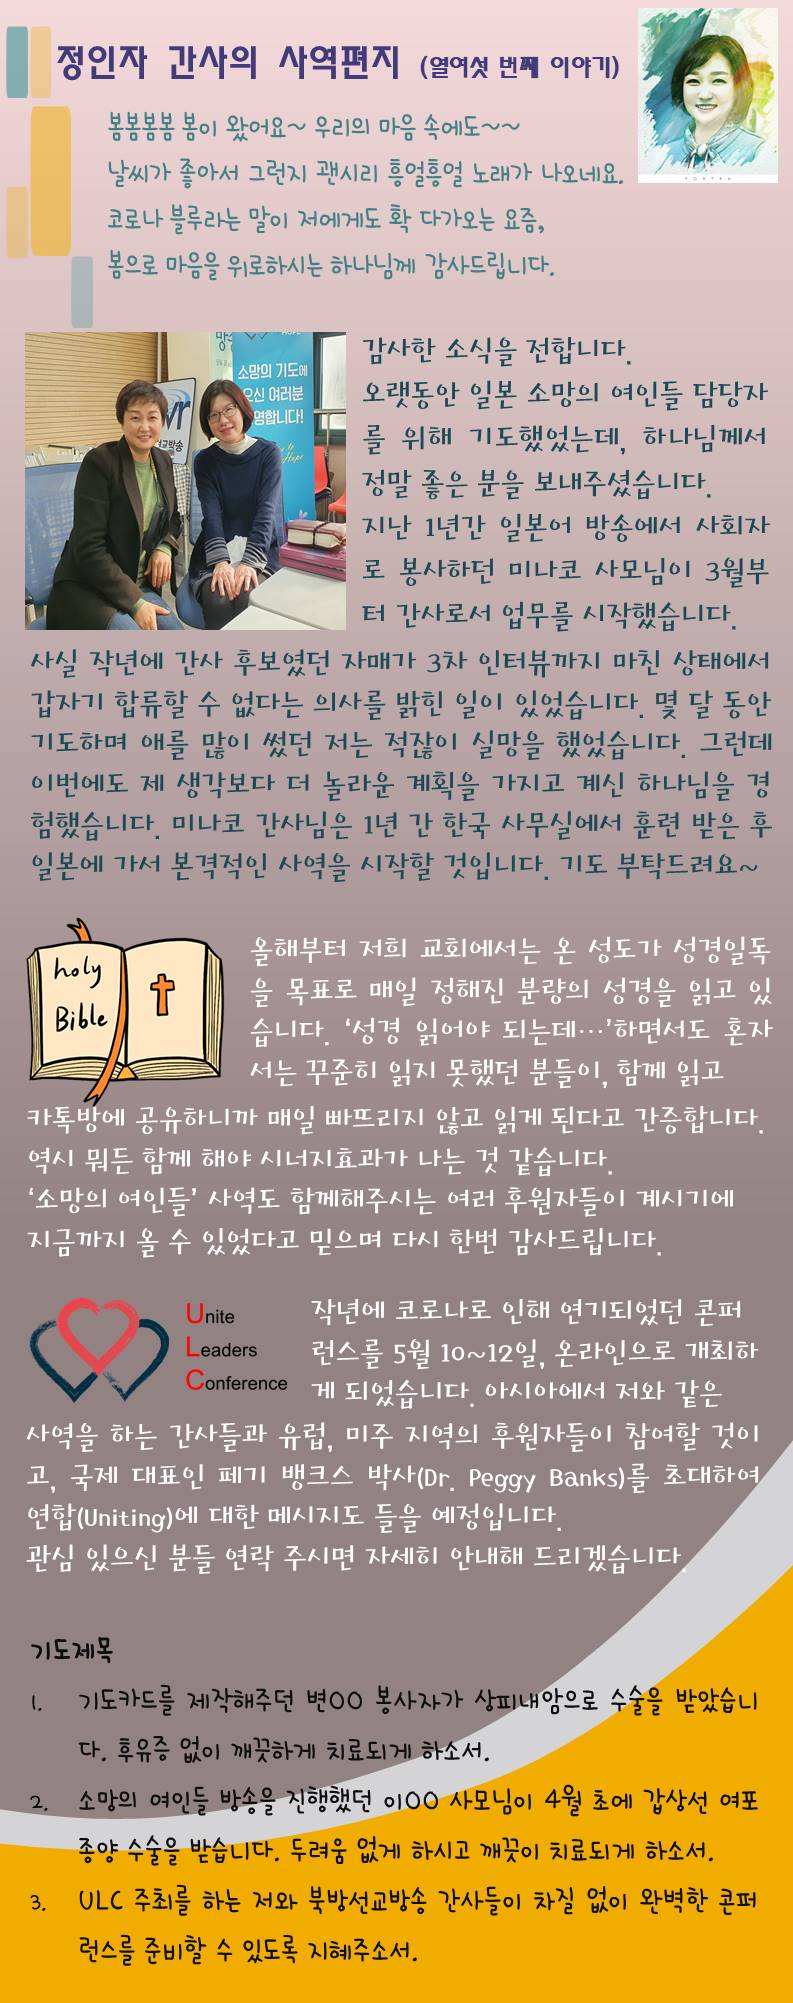 정인자 간사의 사역편지 (열여섯 번째 이야기)
봄봄봄봄 봄이 왔어요~ 우리의 마음 속에도~~
날씨가 좋아서 그런지 괜시리 흥얼흥얼 노래가 나오네요.
코로나 블루라는 말이 저에게도 확 다가오는 요즘,
봄으로 마음을 위로하시는 하나님께 감사드립니다.
소망의 기도에
오신 여러분
영합니다!
감사한 소식을 전합니다.
오랫동안 일본 소망의 여인들 담당자
를 위해 기도했었는데, 하나님께서
정말 좋은 분을 보내주셨습니다.
지난 1년간 일본어 방송에서 사회자
로 봉사하던 미나코 사모님이 3월부
터 간사로서 업무를 시작했습니다.
사실 작년에 간사 후보였던 자매가 3차 인터뷰까지 마친 상태에서
갑자기 합류할 수 없다는 의사를 밝힌 일이 있었습니다. 몇 달 동안
기도하며 애를 많이 썼던 저는 적잖이 실망을 했었습니다. 그런데
이번에도 제 생각보다 더 놀라운 계획을 가지고 계신 하나님을 경
험했습니다. 미나코 간사님은 1년 간 한국 사무실에서 훈련 받은 후
일본에 가서 본격적인 사역을 시작할 것입니다. 기도 부탁드려요~
holy
Bible
올해부터 저희 교회에서는 온 성도가 성경일독
을 목표로 매일 정해진 분량의 성경을 읽고 있
습니다. ‘성경 읽어야 되는데…’하면서도 혼자
서는 꾸준히 읽지 못했던 분들이, 함께 읽고
카톡방에 공유하니까 매일 빠뜨리지 않고 읽게 된다고 간증합니다.
역시 뭐든 함께 해야 시너지효과가 나는 것 같습니다.
‘소망의 여인들’ 사역도 함께해주시는 여러 후원자들이 계시기에
지금까지 올 수 있었다고 믿으며 다시 한번 감사드립니다.
Unite
Leaders
Conference
작년에 코로나로 인해 연기되었던 콘퍼
런스를 5월 10~12일, 온라인으로 개최하
게 되었습니다. 아시아에서 저와 같은
사역을 하는 간사들과 유럽, 미주 지역의 후원자들이 참여할 것이
고, 국제 대표인 페기 뱅크스 박사(Dr. Peggy Banks)를 초대하여
연합(Uniting)에 대한 메시지도 들을 예정입니다.
관심 있으신 분들 연락 주시면 자세히 안내해 드리겠습니다.
기도제목
1. 기도카드를 제작해주던 변OO 봉사자가 상피내암으로 수술을 받았습니
다. 후유증 없이 깨끗하게 치료되게 하소서.
2. 소망의 여인들 방송을 진행했던 이OO 사모님이 4월 초에 갑상선 여포
종양 수술을 받습니다. 두려움 없게 하시고 깨끗이 치료되게 하소서.
3. ULC 주최를 하는 저와 북방선교방송 간사들이 차질 없이 완벽한 콘퍼
런스를 준비할 수 있도록 지혜주소서.